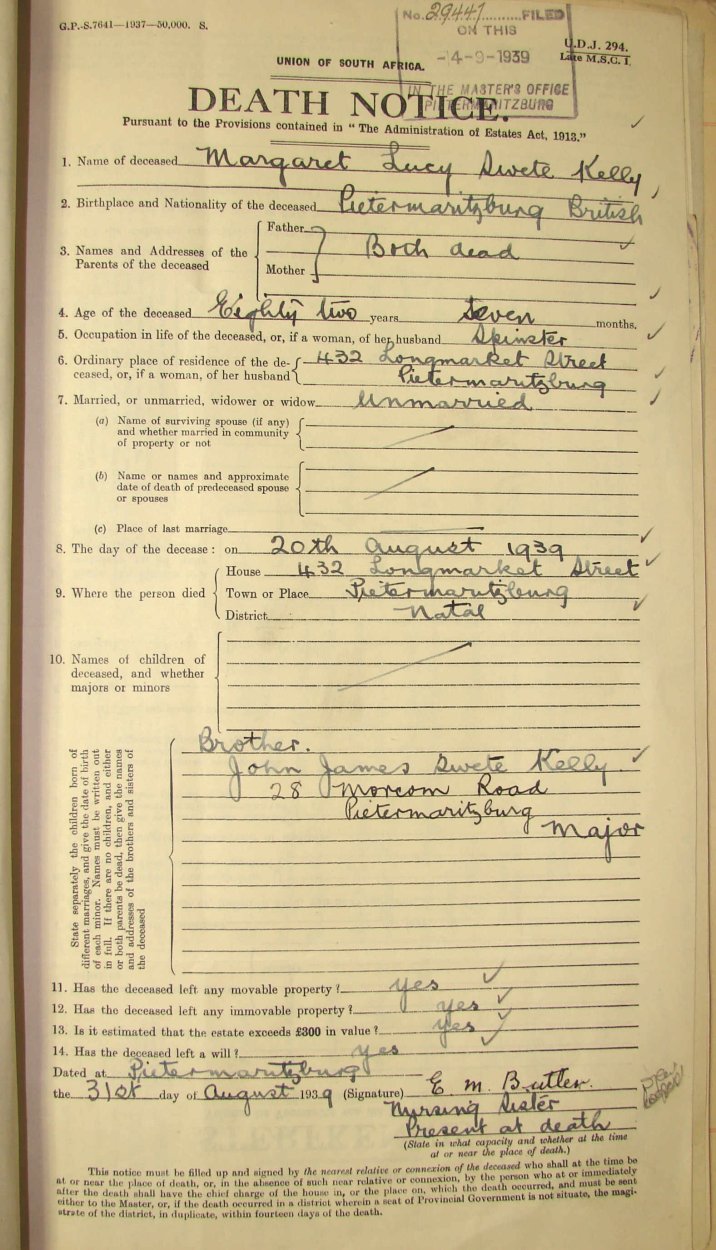 G.P.-S.7641—1937—50,000. S.
No. 29447 FILED
ON THIS
-4-9-1939
IN THE MASTER'S OFFICE
PIETERMARITZBURG
U.D.J. 294.
Late M.S.C. 1.
UNION OF SOUTH AFRICA.
DEATH NOTICE.
Pursuant to the Provisions contained in "The Administration of Estates Act, 1913."
1. Name of deceased Margaret Lucy Swete Kelly
2. Birthplace and Nationality of the deceased Pietermaritzburg British
3. Names and Addresses of the Parents of the deceased
Father
Both dead
Mother
4. Age of the deceased Eighty two years seven months.
5. Occupation in life of the deceased, or, if a woman, of her husband Spinster
6. Ordinary place of residence of the de- 432 Longmarket Street
ceased, or, if a woman, of her husband Pietermaritzburg
7. Married, or unmarried, widower or widow Unmarried
(a) Name of surviving spouse (if any)
and whether married in community
of property or not
(b) Name or names and approximate
date of death of predeceased spouse
or spouses
(c) Place of last marriage
8. The day of the decease: on 20th August 1939
House 432 Longmarket Street
9. Where the person died Town or Place Pietermaritzburg
District Natal
10. Names of children of
deceased, and whether
majors or minors
State separately the children born of
different marriages, and give the date of birth
of each minor. Names must be written out
in full. If there are no children, and either
or both parents be dead, then give the names
and addresses of the brothers and sisters of
the deceased
Brother.
John James Swete Kelly.
28 Morcom Road
Pietermaritzburg
Major
11. Has the deceased left any movable property? yes
12. Has the deceased left any immovable property? yes
13. Is it estimated that the estate exceeds £300 in value? yes
14. Has the deceased left a will? yes
Dated at Pietermaritzburg
the 31st day of August 1939 (Signature) E. M. Butler.
Nursing Sister
Present at death
(State in what capacity and whether at the time
at or near the place of death.)
This notice must be filled up and signed by the nearest relative or connexion of the deceased who shall at the time be
at or near the place of death, or, in the absence of such near relative or connexion, by the person who at or immediately
after the death shall have the chief charge of the house in, or the place on, which the death occurred, and must be sent
either to the Master, or, if the death occurred in a district wherein a seat of Provincial Government is not situate, the magi-
strate of the district, in duplicate, within fourteen days of the death.